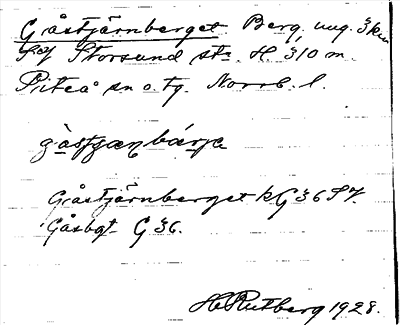 Gåstjärnberget Berg, ung. 3 km
SV Storsund stn. H. 310 m.
Piteå sn o. tg. Norrb. l.
Gåstjärnberget kG 36 SV.
Gåsbgt G 36.
H Rutberg 1928.